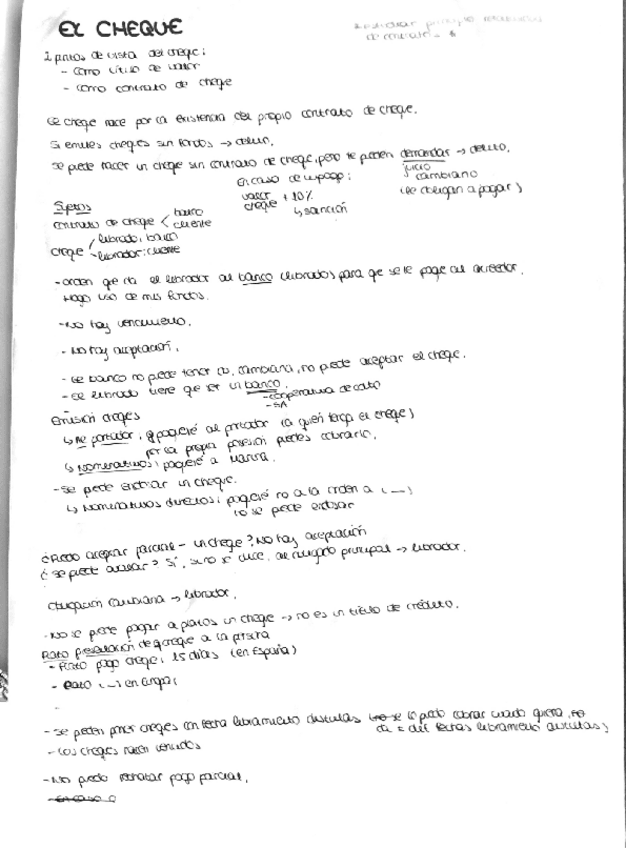 EL CHEQUE
2 puntos de vista del cheque:
- como título de valor
- como contrato de cheque
El cheque nace por la existencia del propio contrato de cheque.
Si emites cheques sin fondos → delito.
Se puede hacer un cheque sin contrato de cheque, pero te pueden demandar → delito.
juicio
cambiario
(te obligan a pagar)
En caso de impago:
valor
cheque + 10%
↳ sanción
Sujetos
contrato de cheque < banco
cliente
cheque < librado: banco
librador: cliente
- orden que da el librador al banco (librado) para que se le pague al acreedor.
Hago uso de mis fondos.
- No hay vencimiento.
- No hay aceptación.
- El banco no puede tener ob. cambiaria, no puede aceptar el cheque.
- El librado tiene que ser un banco.
- cooperativa de
- SA
Emisión cheques
↳ Al portador: páguese al portador (a quien tenga el cheque)
por la propia posesión puedes cobrarlo.
↳ Nominativos: páguese a Marina.
- Se puede endosar un cheque.
↳ Nominativos directos: páguese no a la orden a (...)
no se puede endosar
¿Puedo aceptar parcial - un cheque? No hay aceptación
¿Se puede avalar? Sí, si no se dice, al obligado principal → librador.
Obligación cambiaria → librador.
- No se puede pagar a plazos un cheque → no es un título de crédito.
Plazo presentación de cheque a la
- Plazo pago cheque: 15 días (en España)
- Plazo (...) en Europa:
- Se pueden poner cheques con fecha libramiento distintas se lo puedo cobrar cuando quiera,
da = del fechas libramiento distintas)
- Los cheques nacen vencidos
- No puedo rechazar pago parcial.
- En caso